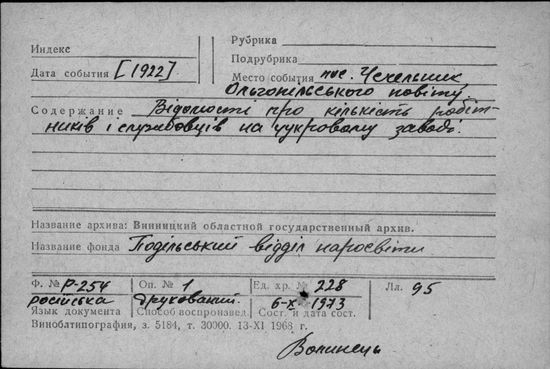 Индекс
Рубрика
Подрубрика
Дата события [1922]
Место события пос. Чечельник
Ольгопільського повіту
Содержание Відомості про кількість робіт-
ників і службовців на цукровому заводі.
Название архива: Винницкий областной государственный архив.
Название фонда Подільський відділ наросвіти
Ф. № Р-254 Оп. № 1 Ед. хр. № 228 Лл. 95
російська друкований 6-X-1973
Язык документа Способ воспроизвед. Сост. и дата сост.
Виноблтипография, з. 5184, т. 30000. 13-XI 1968 г.